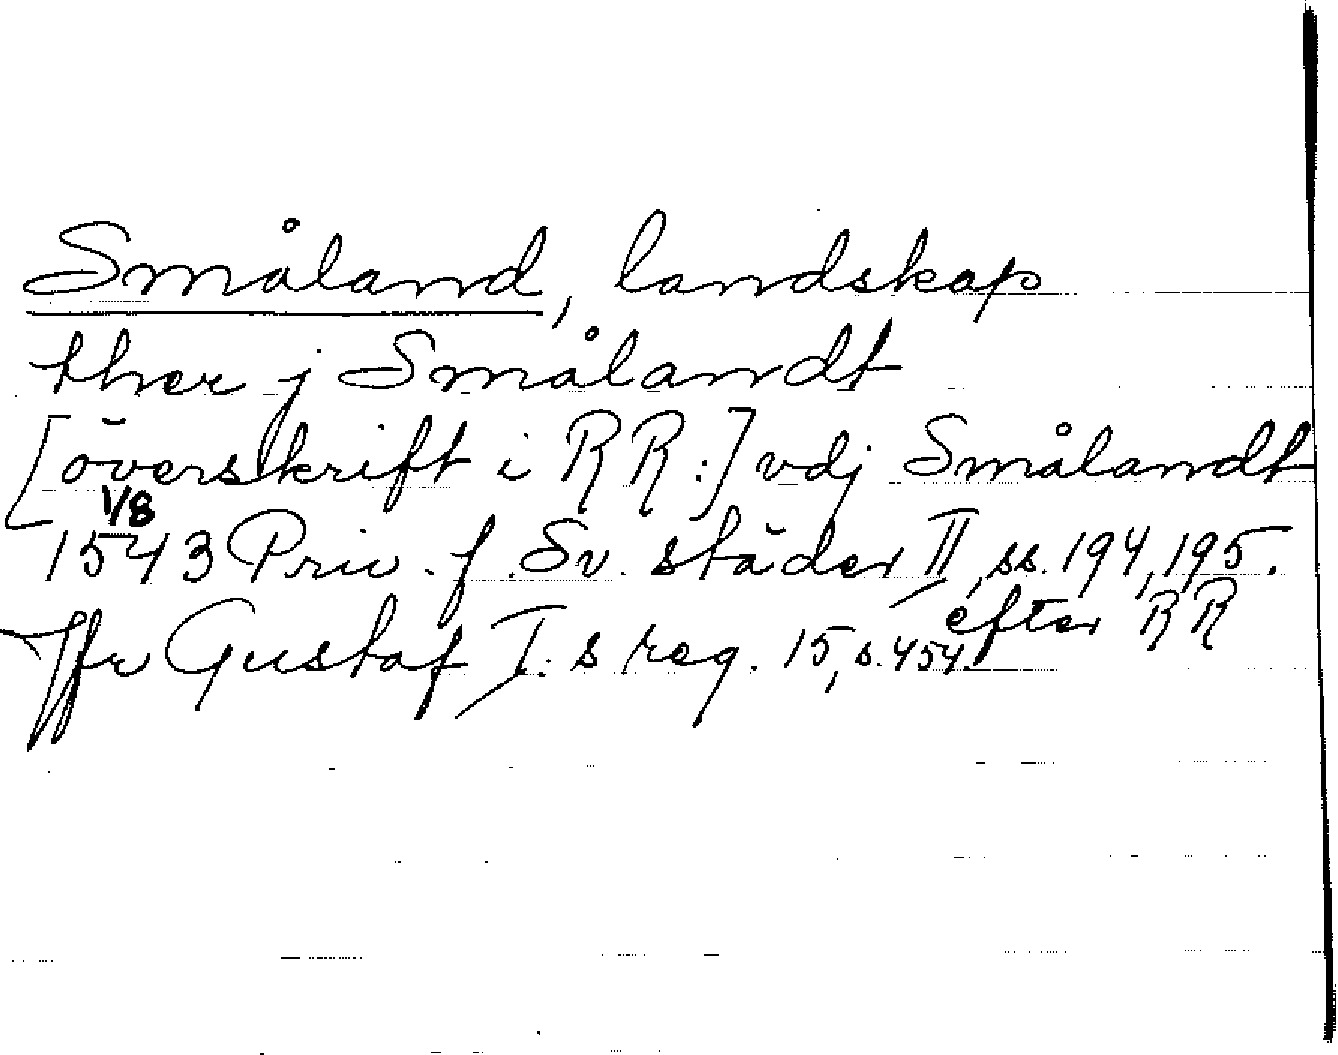 Småland, landskap
ther j Smålandt
[överskrift i RR:] vdj Smålandt
1/8
1543 Priv. f. Sv. städer II, ss. 194, 195.
efter RR
Jfr Gustaf I:s reg. 15, s. 454.